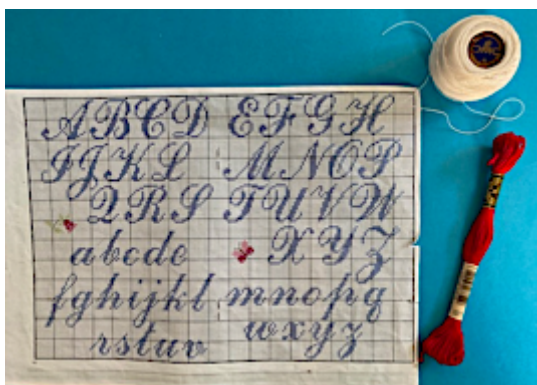 ABCD EFGH
IJKL MNOP
QRS TUVW
abcde XYZ
fghijkl mnopq
rstuv wxyz
DMC